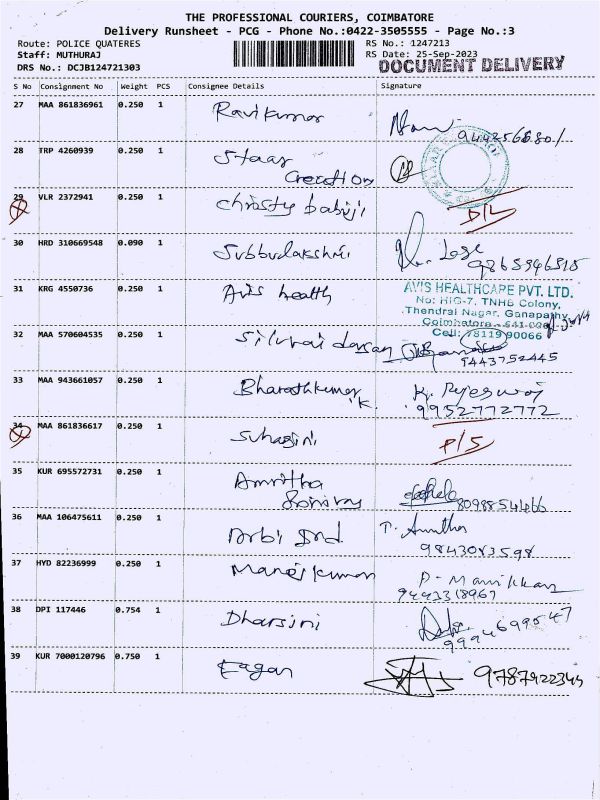 THE PROFESSIONAL COURIERS, COIMBATORE
Delivery Runsheet - PCG - Phone No.:0422-3505555 - Page No.:3
Route: POLICE QUATERES
Staff: MUTHURAJ
DRS No.: DCJB124721303
RS No.: 1247213
RS Date: 25-Sep-2023
DOCUMENT DELIVERY
S No Consignment No Weight PCS Consignee Details Signature
27 MAA 861836961 0.250 1 Ravikumar
28 TRP 4260939 0.250 1 Staar Creation
29 VLR 2372941 0.250 1 Christy babuji D/L
30 HRD 310669548 0.090 1 Subbulakshmi
9865946515
31 KRG 4550736 0.250 1 Avis health
AVIS HEALTHCARE PVT. LTD.
No: HIG-7, TNHB Colony,
Thendral Nagar, Ganapathy,
Coimbatore - 641 006
Cell: 78119 90066
32 MAA 570604535 0.250 1
9443752445
33 MAA 943661057 0.250 1 Bharathkumar K.
9952772772
34 MAA 861836617 0.250 1 Suhasini P/S
35 KUR 695572731 0.250 1 Amritha
8098554466
36 MAA 106475611 0.250 1 Arbi Ind T. Amutha
9843083598
37 HYD 82236999 0.250 1 Manojkumar P- Manikkam
9443318967
38 DPI 117446 0.754 1 Dharsini
9994699547
39 KUR 7000120796 0.750 1 Eagan
9787922345